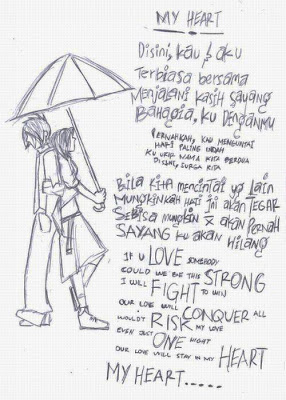 MY HEART
Disini, kau & aku
Terbiasa bersama
Menjalani kasih sayang
Bahagia, ku denganmu
PERNAHKAH, KAU MENGUNTAI
HARI PALING INDAH
KU UKIR NAMA KITA BERDUA
DISINI, SURGA KITA
BILA KITA MENCINTAI yg LAIN
MUNGKINKAH HATI INI AKAN TEGAR
SEBISA MUNGKIN AKAN PERNAH
SAYANG KU AKAN HILANG
IF U LOVE SOMEBODY
COULD WE BE THIS STRONG
I WILL FIGHT TO WIN
OUR LOVE WILL CONQUER ALL
WOULDN'T RISK MY LOVE
EVEN JUST ONE NIGHT
OUR LOVE WILL STAY IN MY HEART
MY HEART.....